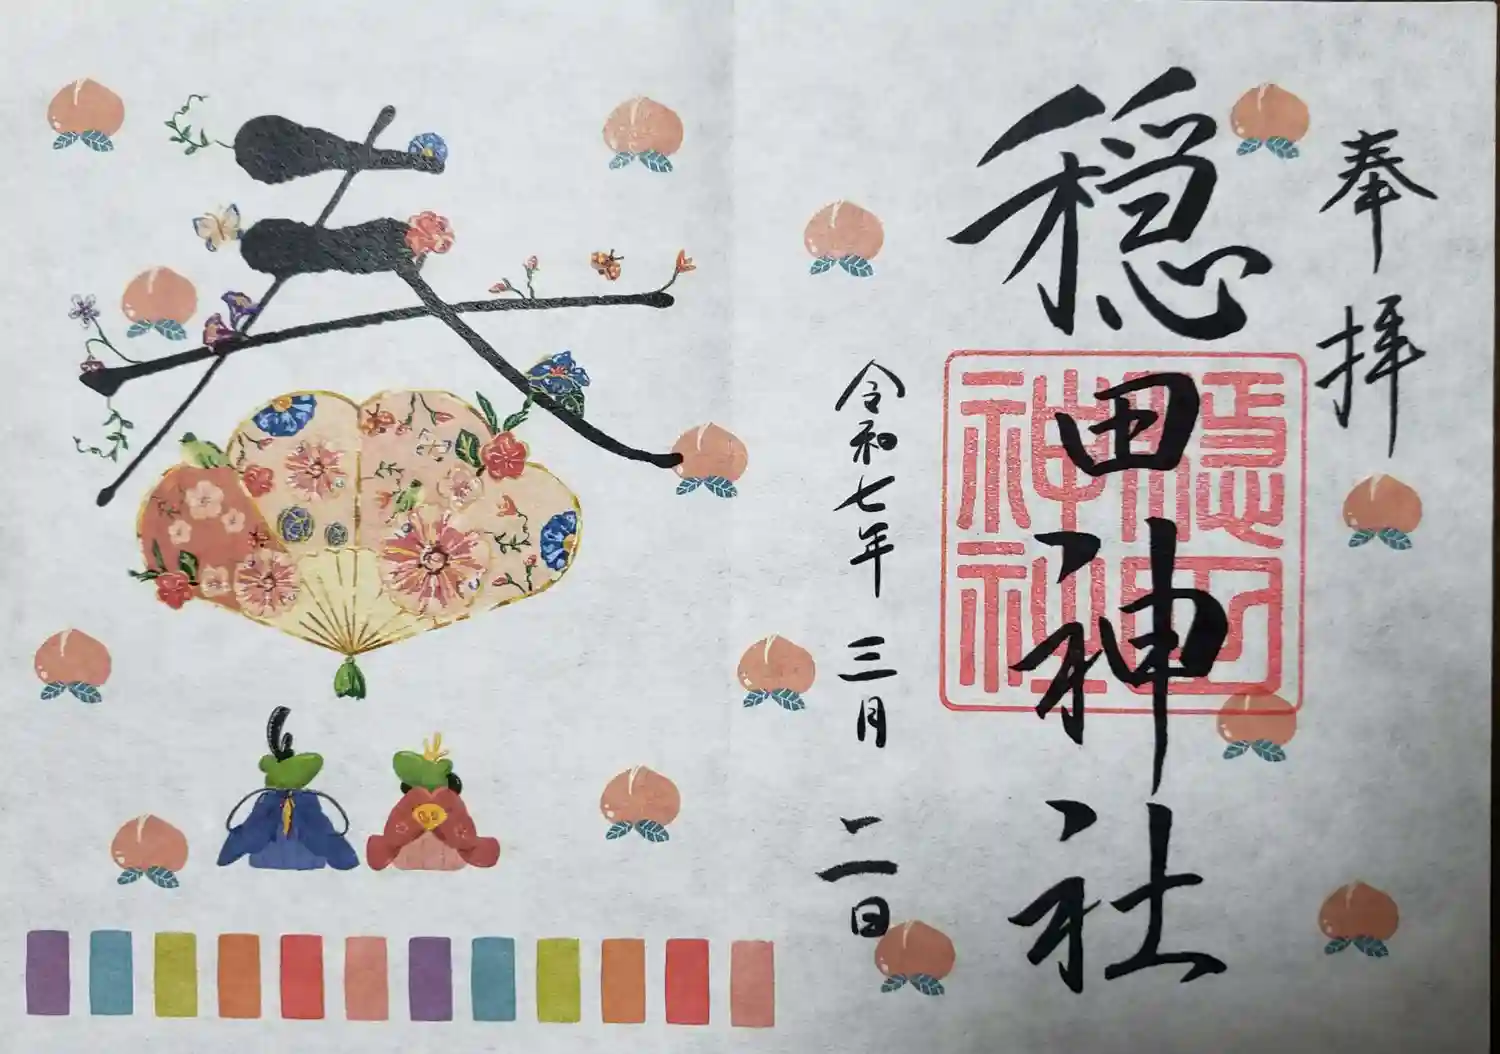 奉拝
穏田神社
穏田
神社
令和七年 三月 二日